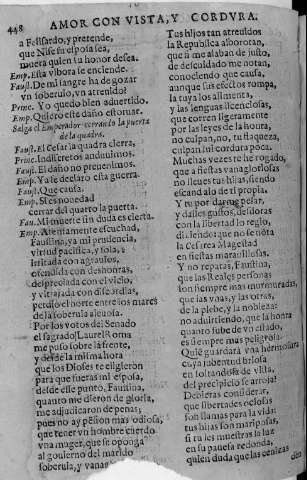 448
AMOR CON VISTA, Y CORDVRA.
a Felisardo, y pretende,
que Nise su esposa sea,
muera quien su honor desea.
Emp. Esta vibora se enciende.
Faust. De mi sangre ha de gozar
vn soberuio, vn atreuido!
Princ. Yo quedo bien aduertido.
Emp. Quiero este daño estoruar.
Salga el Emperador cerrando la puerta
de la quadra.
Faust. El Cesar la quadra cierra,
Princ. Indiscretos anduuimos.
Faust. El daño no preuenimos.
Emp. Ya se declarò esta guerra.
Faust. Que causa.
Emp. Si es nouedad
cerrar del quarto la puerta.
Fau. Mi muerte sin duda es cierta.
Emp. Atentamente escuchad,
Faustina, ya mi prudencia,
virtud pacifica, y sola,
irritada con agrauios,
ofendida con deshonras,
despreciada con el vicio,
y vltrajada con discordias,
perdiò el norte entre los mares
de la soberuia aleuosa.
Por los votos del Senado
el sagrado Laurel Roma
me puso sobre la frente,
y desde la misma hora
que los Dioses te eligieron
para que fueras mi esposa,
desde esse punto, Faustina,
quanto me dieron de gloria,
me adjudicaron de penas;
pues no ay pension mas odiosa,
que tener vn hombre cuerdo
vna muger, que se oponga
al gouierno del marido
soberuia, y vana
Tus hijos tan atreuidos
la Republica alborotan,
que a mi me alaban de justo,
de descuidado me notan,
conociendo que causa,
aunque sus efectos rompa,
la tuya los alimenta,
y las lenguas licenciosas,
que corren ligeramente
por las leyes de la honra,
no culpan, no, tu flaqueza,
culpan mi cordura poca.
Muchas vezes te he rogado,
que a fiestas vanagloriosas
no lleues tus hijas, siendo
escandalo de ti propia.
Y tu por darme pesar,
y dalles gustos,
con la libertad lo
diziendo: que no se nota
la Cesarea Magestad
en fiestas marauillosas.
Y no reparas, Faustina,
que las Reales personas
son siempre mas murmuradas,
que las vnas, y las otras,
de la plebe, y la nobleza:
no aduirtiendo, que la honra
quanto sube de su estado,
es siempre mas peligrosa.
Que guardarà vna hermosura
cuya juuentud briosa
en soltandose de vista,
del precipicio se arroja?
Debieras considerar,
que libertades ociosas
son llamas para la vida:
tus hijas son mariposas,
si ra les muestras la luz
en su pauesa redonda,
quien duda que las cenizas